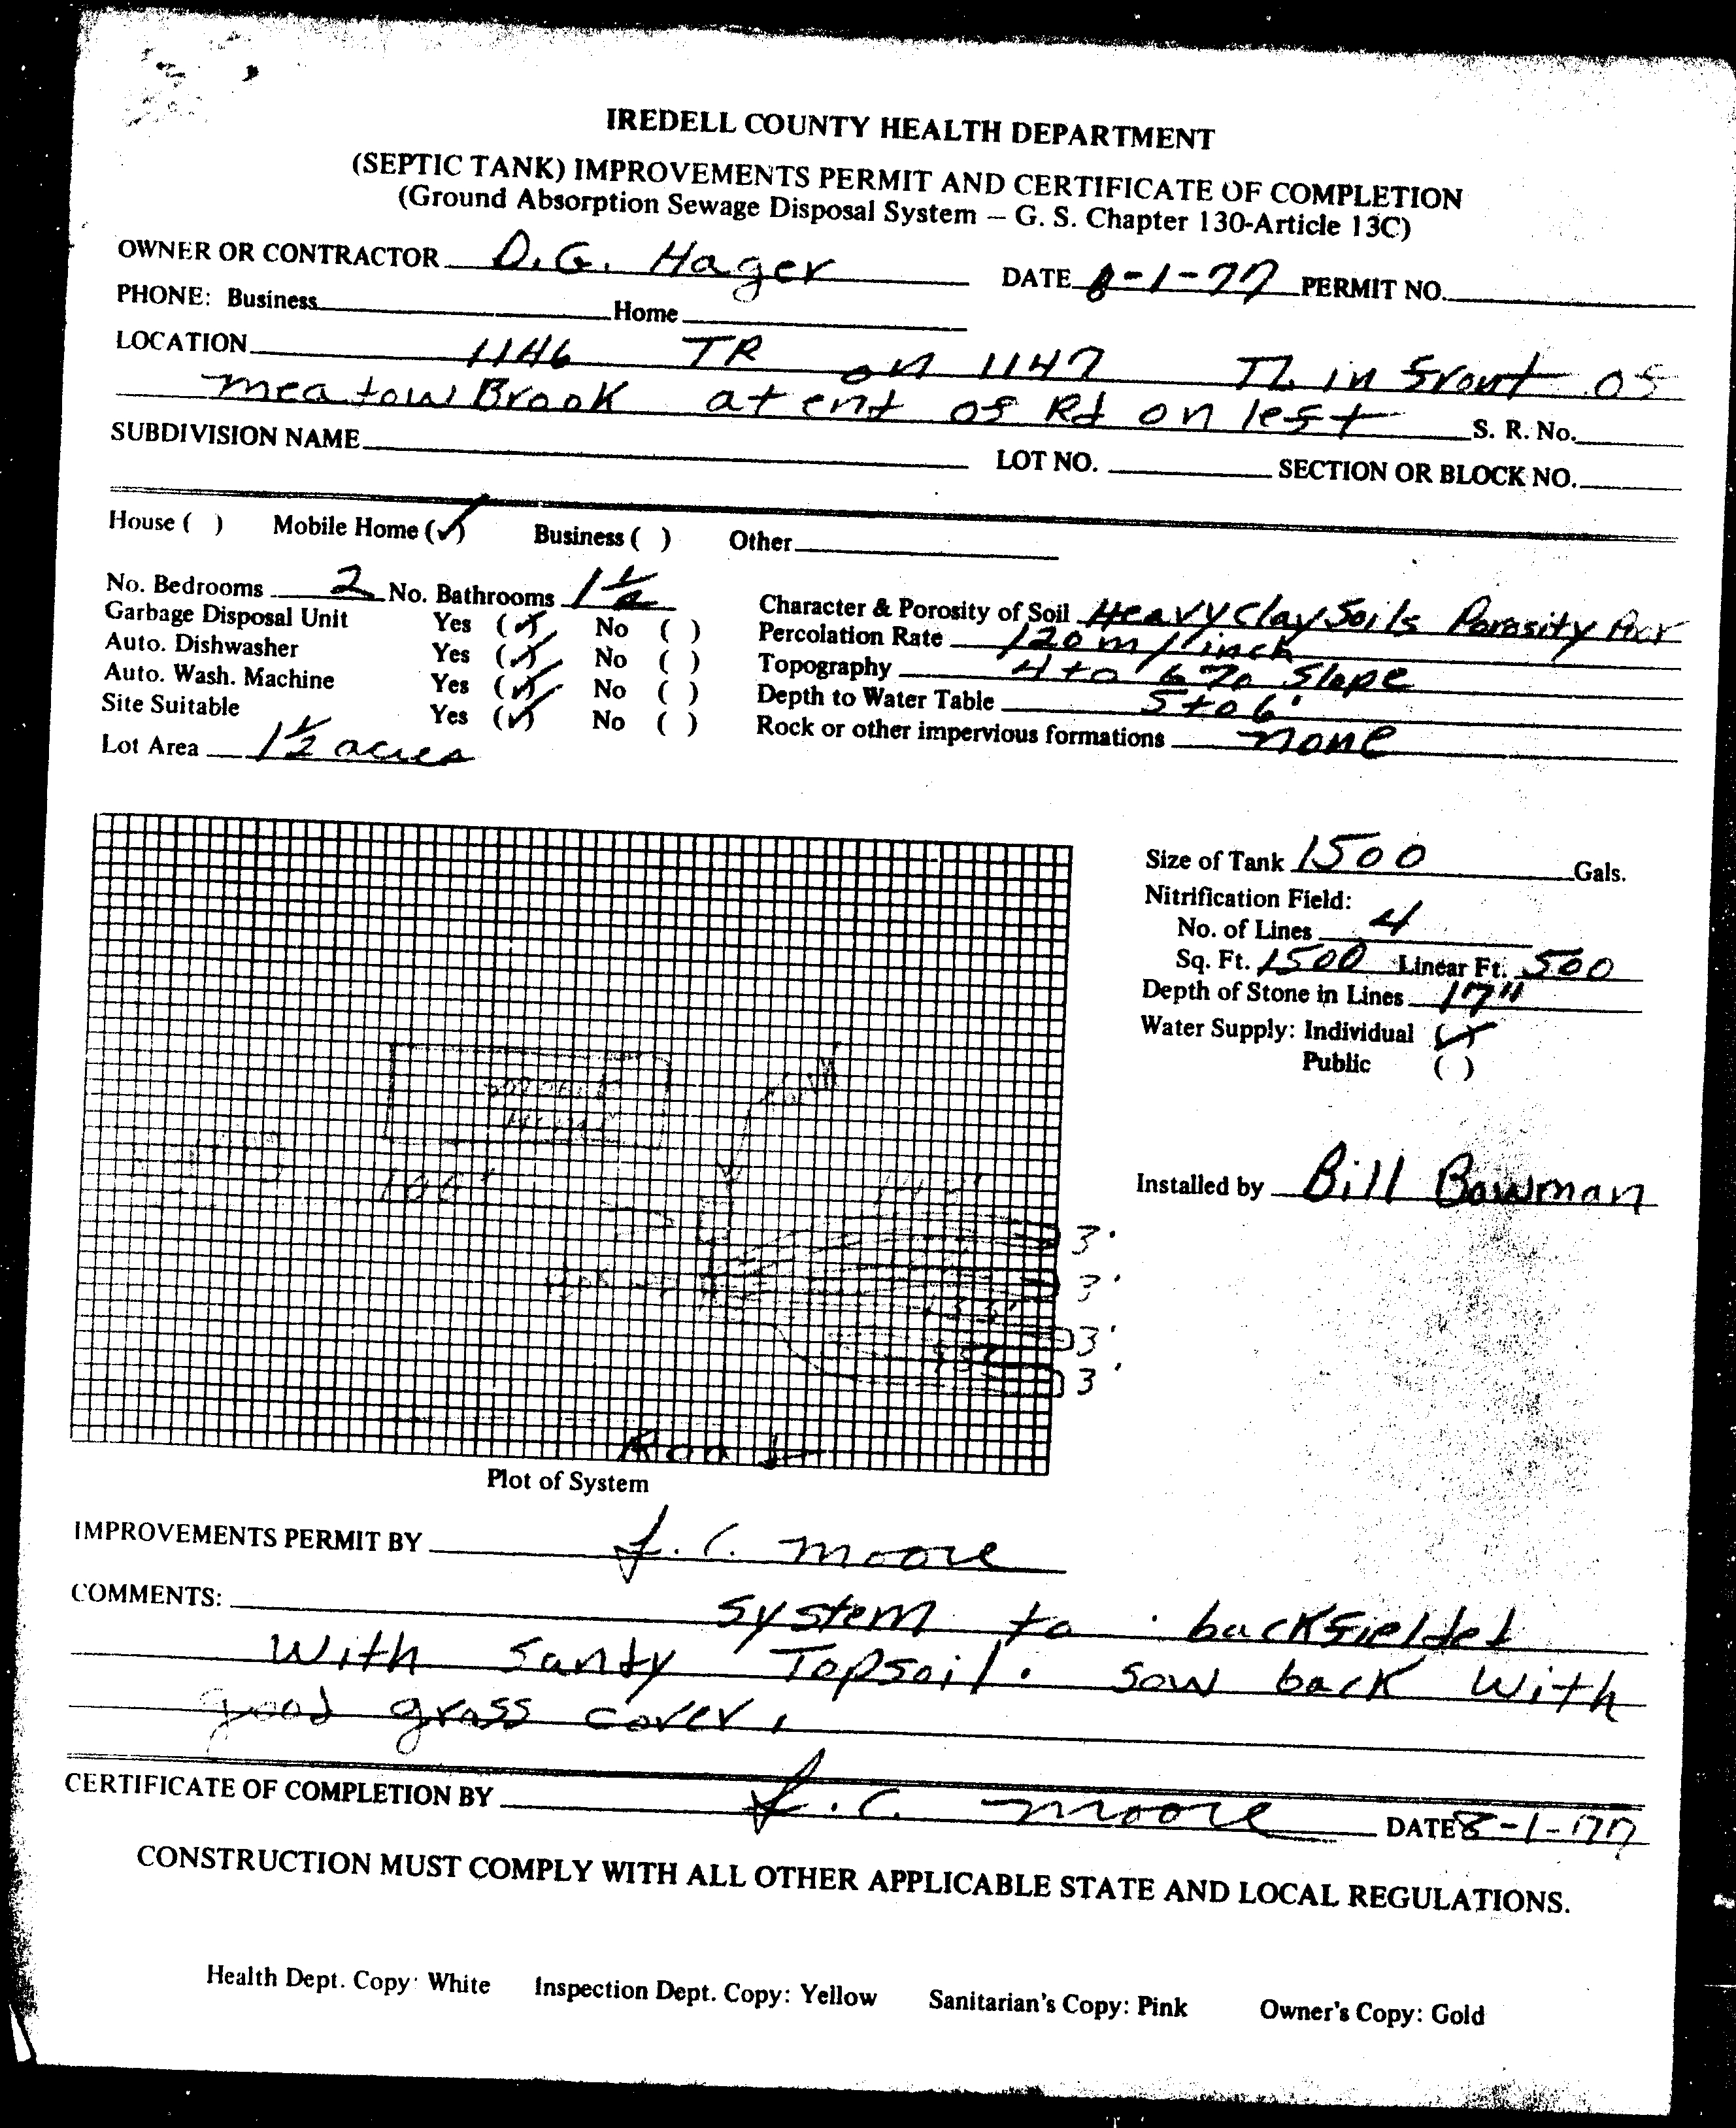 IREDELL COUNTY HEALTH DEPARTMENT
(SEPTIC TANK) IMPROVEMENTS PERMIT AND CERTIFICATE OF COMPLETION
(Ground Absorption Sewage Disposal System – G. S. Chapter 130-Article 13C)
OWNER OR CONTRACTOR D.G. Hager DATE 8-1-77 PERMIT NO.
PHONE: Business Home
LOCATION 1146 TR on 1147 TL in front of
meatowBrook at ent of Rd on left S. R. No.
SUBDIVISION NAME LOT NO. SECTION OR BLOCK NO.
House ( ) Mobile Home (✓) Business ( ) Other
No. Bedrooms 2 No. Bathrooms 1½
Garbage Disposal Unit Yes (✓) No ( )
Auto. Dishwasher Yes (✓) No ( )
Auto. Wash. Machine Yes (✓) No ( )
Site Suitable Yes (✓) No ( )
Lot Area 1½ acres
Character & Porosity of Soil Heavy Clay Soils Porasity Poor
Percolation Rate 120 m/inch
Topography 4 to 6% Slope
Depth to Water Table 5 to 6'
Rock or other impervious formations none
Size of Tank 1500 Gals.
Nitrification Field:
No. of Lines 4
Sq. Ft. 1500 Linear Ft. 500
Depth of Stone in Lines 17"
Water Supply: Individual (✓)
Public ( )
Installed by Bill Bowman
100'
3'
3'
3'
3'
Road
Plot of System
IMPROVEMENTS PERMIT BY J. C. Moore
COMMENTS: System to backfielded
With Santy Topsoil. Sow back With
good grass cover.
CERTIFICATE OF COMPLETION BY J. C. Moore DATE 8-1-77
CONSTRUCTION MUST COMPLY WITH ALL OTHER APPLICABLE STATE AND LOCAL REGULATIONS.
Health Dept. Copy: White Inspection Dept. Copy: Yellow Sanitarian's Copy: Pink Owner's Copy: Gold